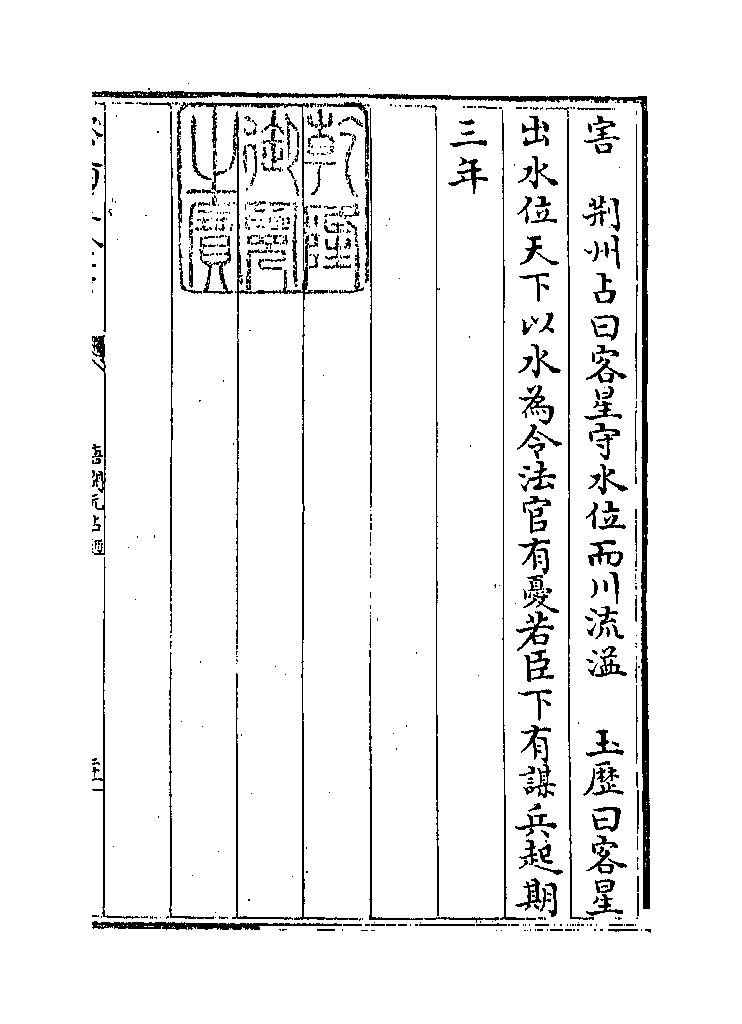 害　荆州占曰客星守水位而川流溢　玉歴曰客星
出水位天下以水為令法官有憂若臣下有謀兵起期
三年
乾隆
御覽
之寶
唐開元占經